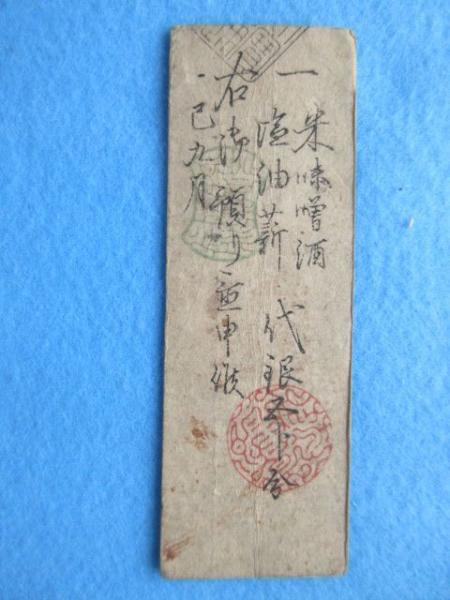 一 米味噌酒
塩油薪 代銀五分
右慥預り置申候
巳九月